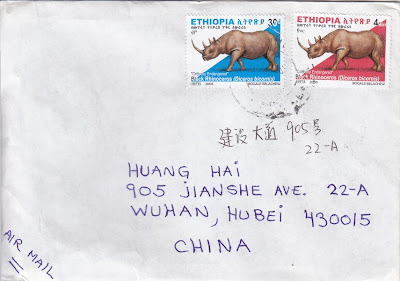 ETHIOPIA ኢትዮጵያ
30
Critically Endangered
Black Rhinoceros (Diceros bicornis)
BOGALE BELACHEW
ETHIOPIA ኢትዮጵያ
4
Critically Endangered
Black Rhinoceros (Diceros bicornis)
BOGALE BELACHEW
建设大道 905号
22-A
HUANG HAI
905 JIANSHE AVE. 22-A
WUHAN, HUBEI 430015
CHINA
AIR MAIL